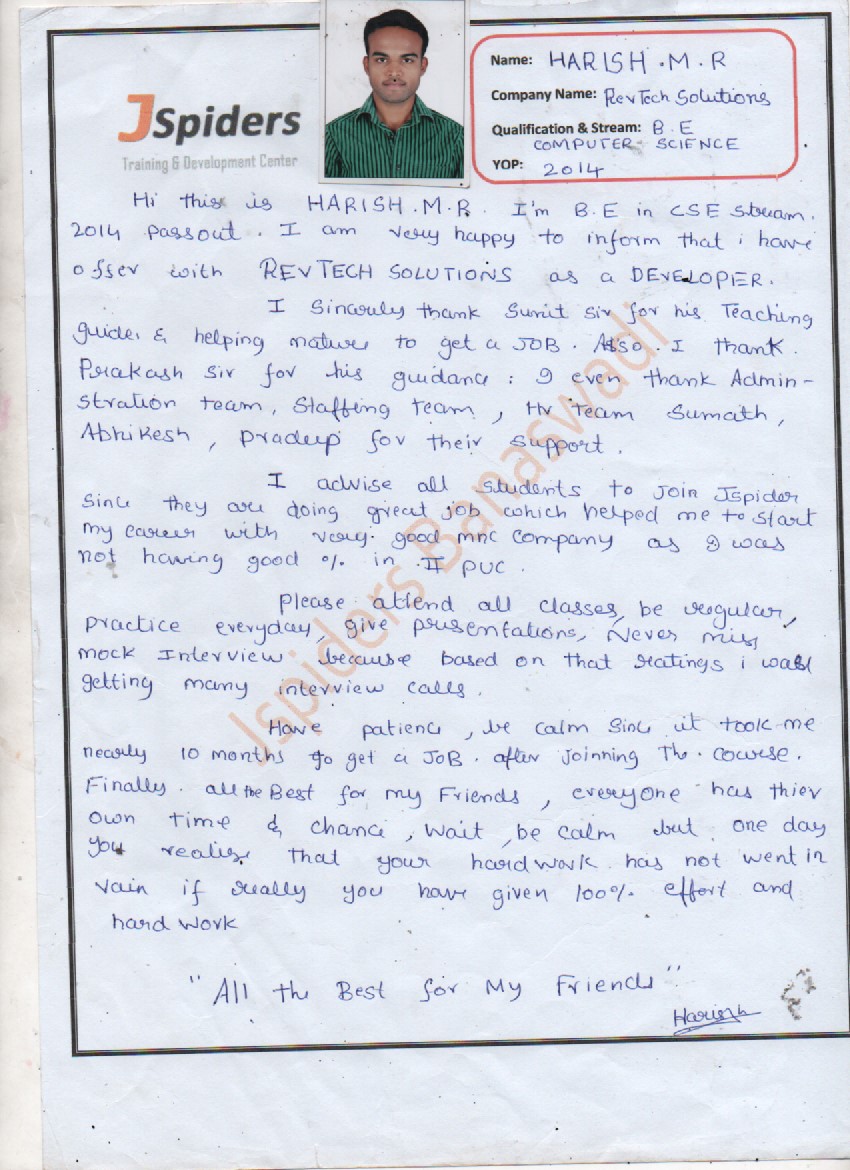 JSpiders
Training & Development Center
Name: HARISH . M . R
Company Name: RevTech Solutions
Qualification & Stream: B . E
COMPUTER SCIENCE
YOP: 2014
Hi this is HARISH . M . R . I'm B . E in CSE stream .
2014 passout . I am very happy to inform that i have
offer with REVTECH SOLUTIONS as a DEVELOPER .
I Sincerely thank Sunit sir for his Teaching
guide & helping nature to get a JOB . Also . I thank .
Prakash sir for his guidance : I even thank Admin -
stration team , Staffing team , Hr team Sumath ,
Abhikesh , pradeep for their support .
I advise all students to join Jspider
since they are doing great job which helped me to start
my career with very good mnc company as I was
not having good % in II PUC .
please attend all classes, be regular,
practice everyday, give presentations, Never miss
mock Interview because based on that ratings i was
getting many interview calls .
Have patience , be calm since it took me
nearly 10 months to get a JOB . after joinning The . course .
Finally . all the Best for my Friends , everyone has thier
own time & chance , wait , be calm but one day
you realise that your hardwork has not went in
vain if really you have given 100% effort and
hard work
"All the Best for My Friends"
Harish
Jspiders Banaswadi